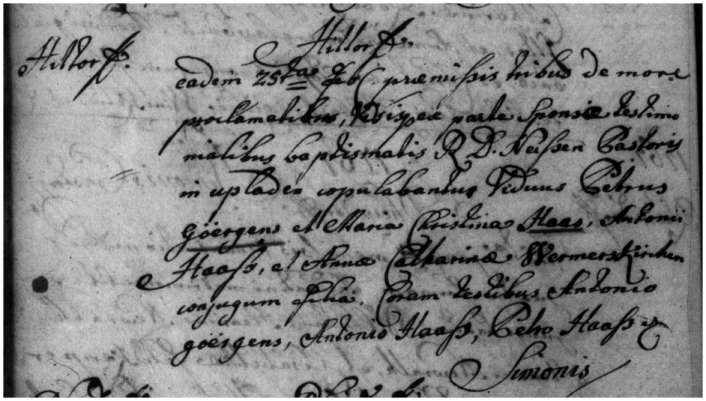 Hittorff.
Hittorff.
eadem 25ta Feb. praemissis tribus de more
proclamatibus, visisque ex parte Sponsae testimo
nialibus baptismatis R. D. Neissen Pastoris
in upladen copulabantur Viduus Petrus
Göergens et Maria Christina Haas, Antonii
Haass, et Annae Catharinae Wermerskirchen
conjugum filia. Coram testibus Antonio
göergens, Antonio Haass, Petro Haass
Simonis